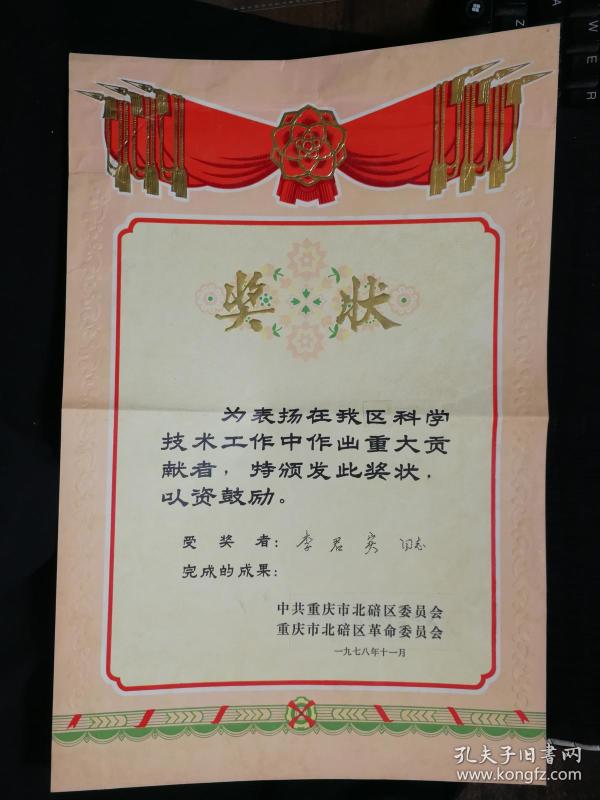 奖状
为表扬在我区科学
技术工作中作出重大贡
献者，特颁发此奖状，
以资鼓励。
受奖者：李君实 同志
完成的成果：
中共重庆市北碚区委员会
重庆市北碚区革命委员会
一九七八年十一月
孔夫子旧书网
www.kongfz.com